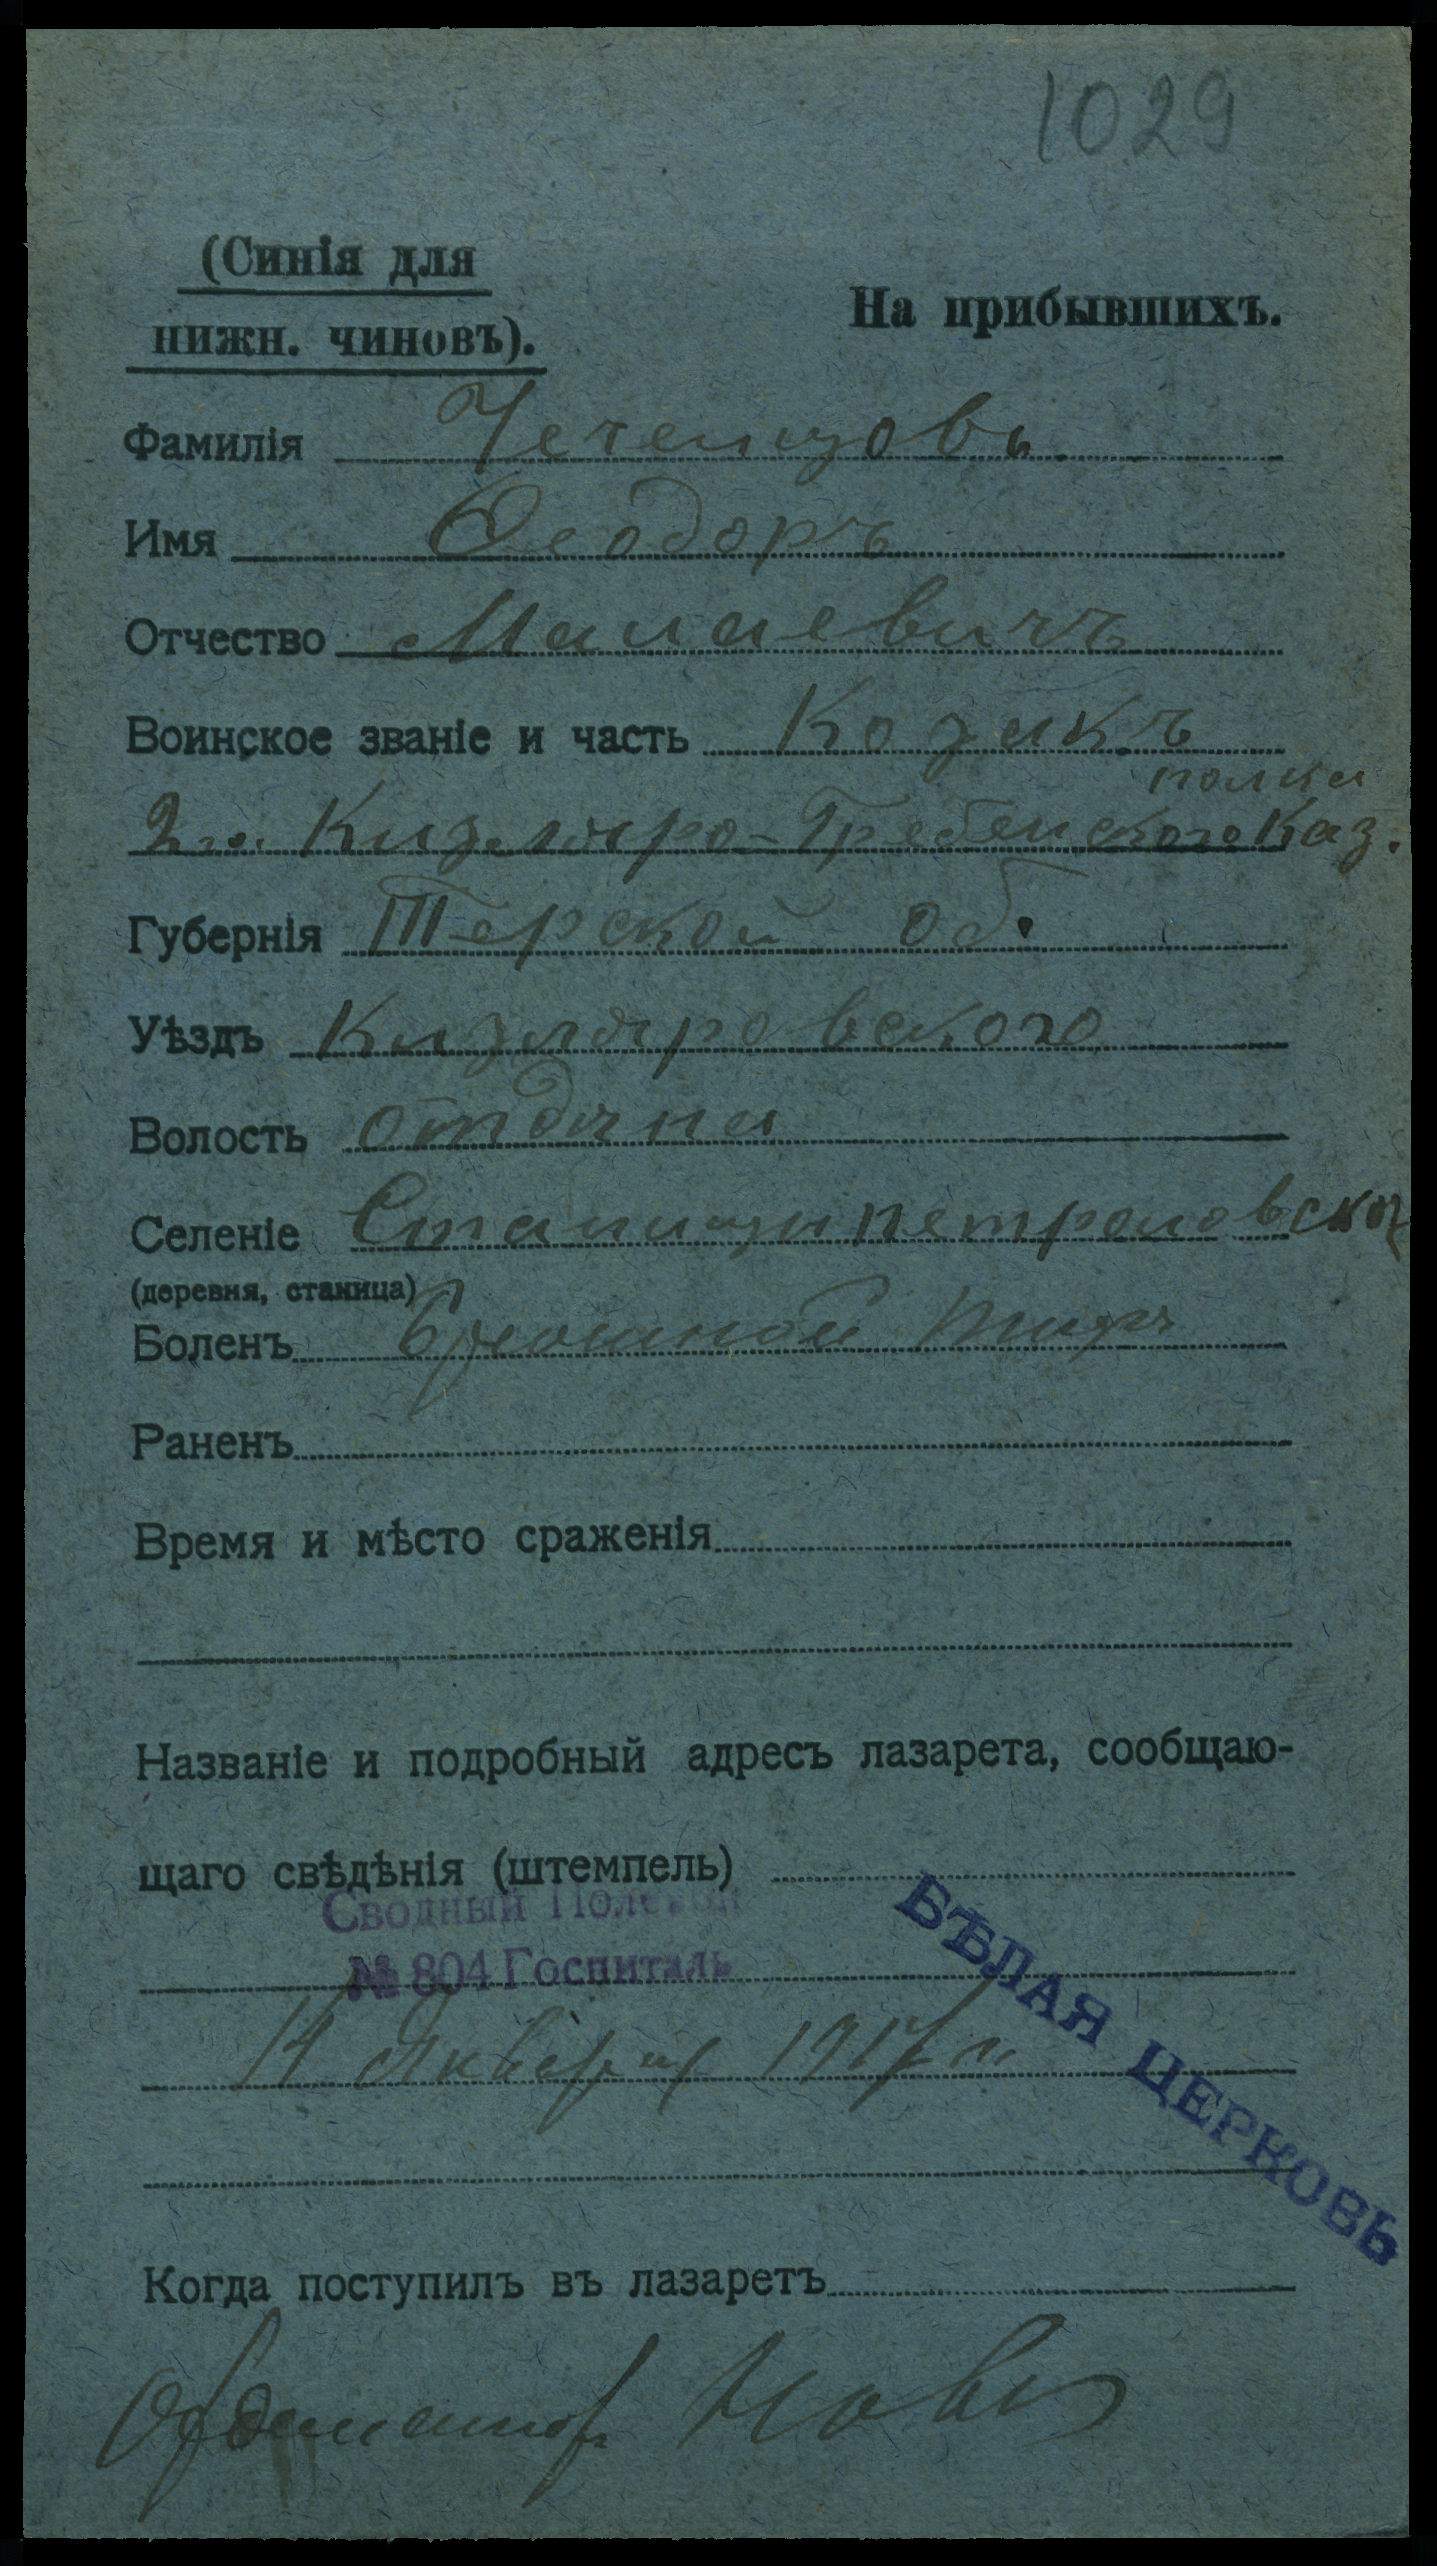 1029
(Синія для
нижн. чиновъ).
На прибывшихъ.
Фамилія Чеченцовъ
Имя Ѳеодоръ
Отчество
Воинское званіе и часть Козакъ
полка
2го. Кизляро-Гребенского Каз.
Губернія Терской об.
Уѣздъ Кизляровского
Волость отдѣла
Селеніе Станицы
(деревня, станица)
Боленъ брюшной тифъ
Раненъ
Время и мѣсто сраженія
Названіе и подробный адресъ лазарета, сообщаю-
щаго свѣдѣнія (штемпель)
Сводный Полевой
№ 804 Госпиталь
БѢЛАЯ ЦЕРКОВЬ
14 Января 1917 г.
Когда поступилъ въ лазаретъ